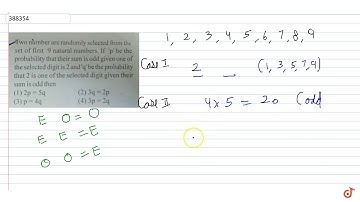 388354
Two number are randomly selected from the
set of first 9 natural numbers. If 'p' be the
probability that their sum is odd given one of
the selected digit is 2 and 'q' be the probability
that 2 is one of the selected digit given their
sum is odd then
(1) 2p = 5q (2) 3q = 2p
(3) p = 4q (4) 3p = 2q
E O = O
E E = E
O O = E
1, 2, 3, 4, 5, 6, 7, 8, 9
Case I 2 _ (1, 3, 5, 7, 9)
Case II 4 x 5 = 20 (odd
doubtnut